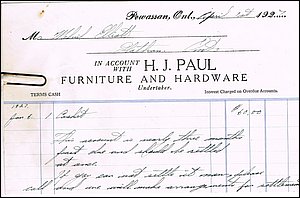 Powassan, Ont., April 1st 1927
M
IN ACCOUNT WITH H. J. PAUL
FURNITURE AND HARDWARE
Undertaker.
TERMS CASH Interest Charged on Overdue Accounts.
1927
Jan 6 1 Casket $60.00
This account is nearly three months
past due and should be settled
at once.
If you can not settle it now, please
call and we will make arrangements for settlement